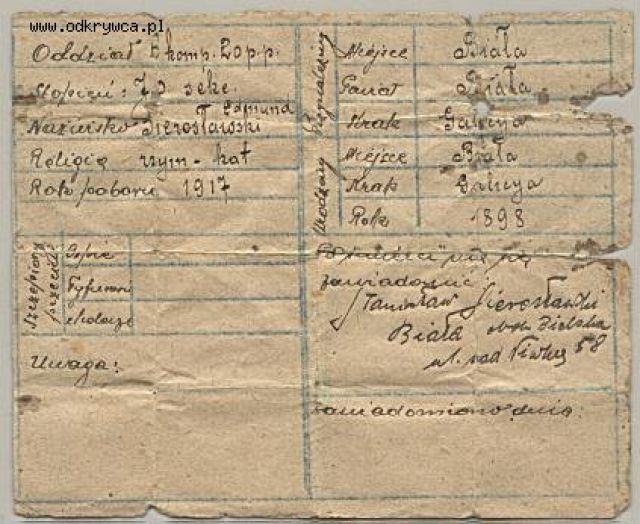 www.odkrywca.pl
Oddział komp. 20 p.p.
Stopień:
Edmund
Nazwisko Sierosławski
Religia rzym-kat
Rok poboru 1917
Szczepiony przeciw
Ospie
Tyfusowi
cholerze
Uwaga:
Przynależny
Miejsce Biała
Powiat Biała
Kraj Galicya
Urodzony
Miejsce Biała
Kraj Galicya
Rok 1898
zawiadomić
Stanisław Sierosławski
Biała obok Bielska
ul. nad 58
zawiadomiono dnia: